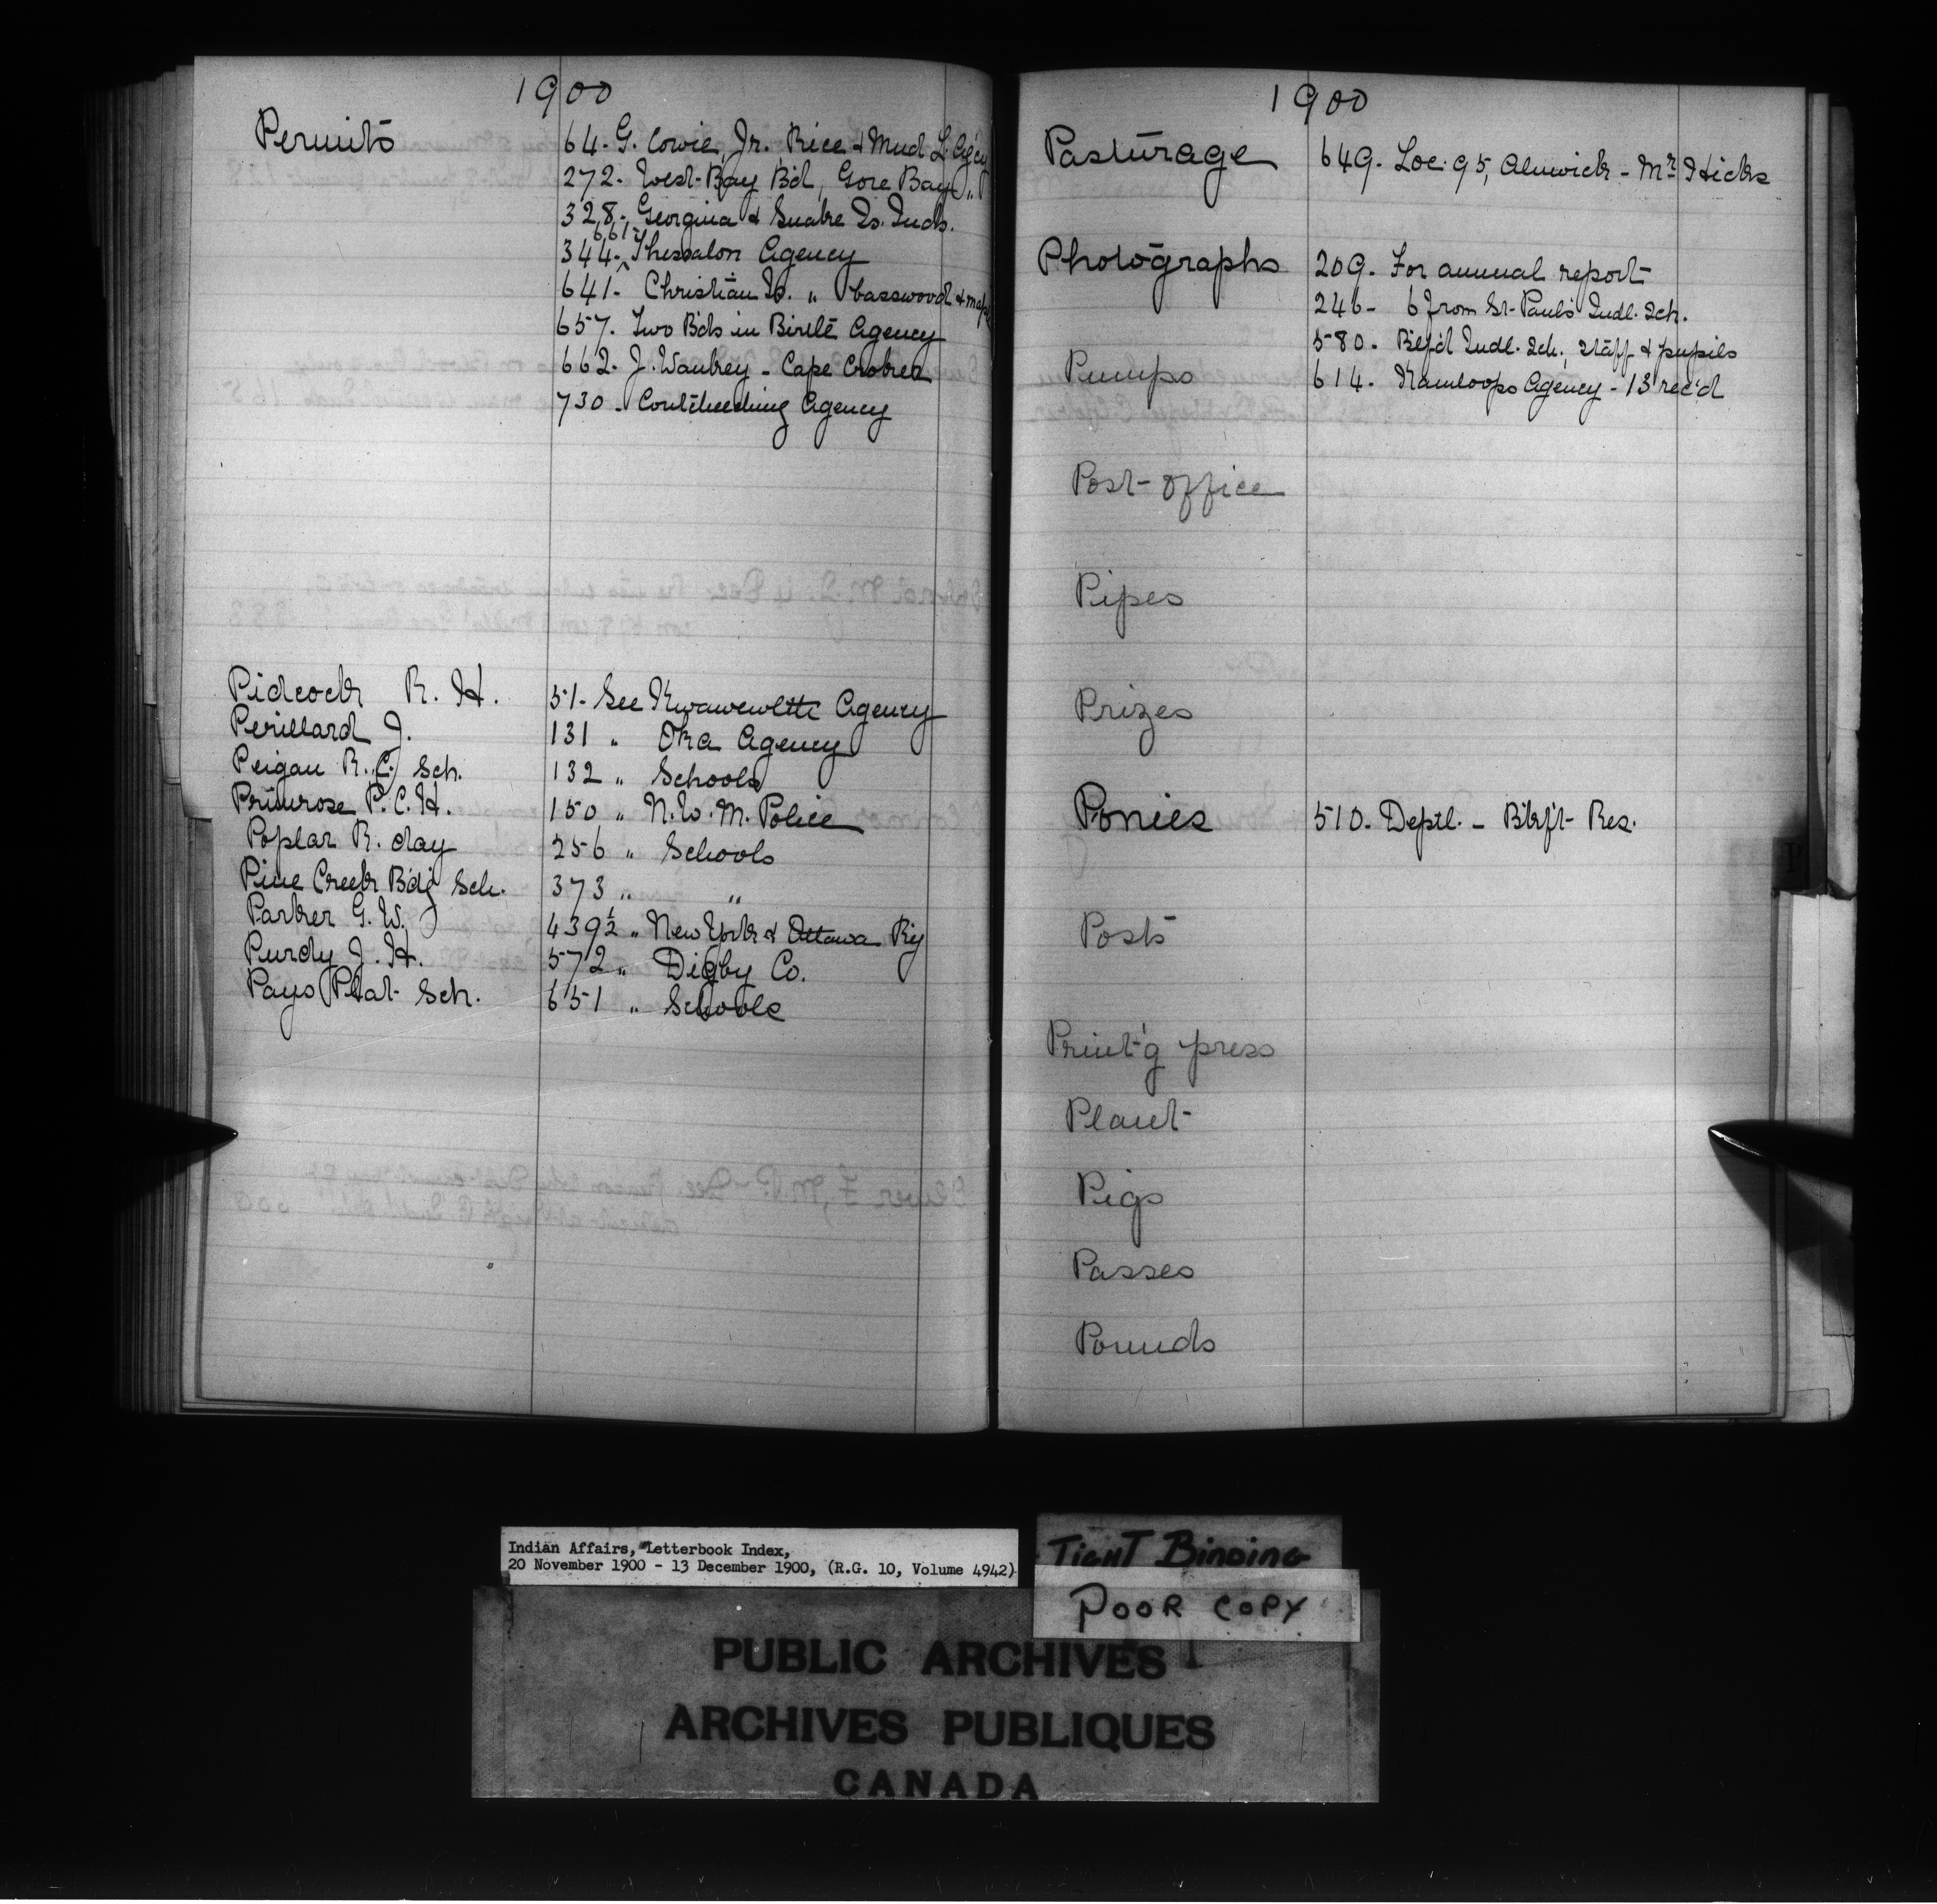 1900
Permits 64. G. Cowie, Jr. Rice & Mud L. Agency
272. West Bay Bd, Gore Bay "
328. Georgina & Snake Is. Inds.
661
344. Thessalon Agency
641. Christian Is. " basswood & maple
657. Two Bds in Birtle Agency
662. J. Waukey - Cape Croker
730. Coutcheeching Agency
Pidcock R. H. 51. See Kwawewlth Agency
Perillard J. 131 " Oka Agency
Peigan R. C. Sch. 132 " Schools
Primrose P. C. H. 150 " N. W. M. Police
Poplar R. day 256 " Schools
Pine Creek Bd'g Sch. 373 " "
Parker G. W. 439½ " New York & Ottawa Ry
Purdy J. H. 572 " Digby Co.
Pays Plat Sch. 651 " Schools
1900
Pasturage 649. Loc. 95, Alnwick - Mr Hicks
Photographs 209. For annual report
246 - 6 from St. Pauls Indl. Sch.
580. Btlf'd Indl. Sch; staff & pupils
Pumps 614. Kamloops Agency - 13 rec'd
Post-office
Pipes
Prizes
Ponies 510. Deptl. - Blkft Res.
Posts
Print'g press
Plant
Pigs
Passes
Pounds
P
Indian Affairs, Letterbook Index,
20 November 1900 - 13 December 1900, (R.G. 10, Volume 4942)
TIGHT BINDING
POOR COPY
PUBLIC ARCHIVES
ARCHIVES PUBLIQUES
CANADA